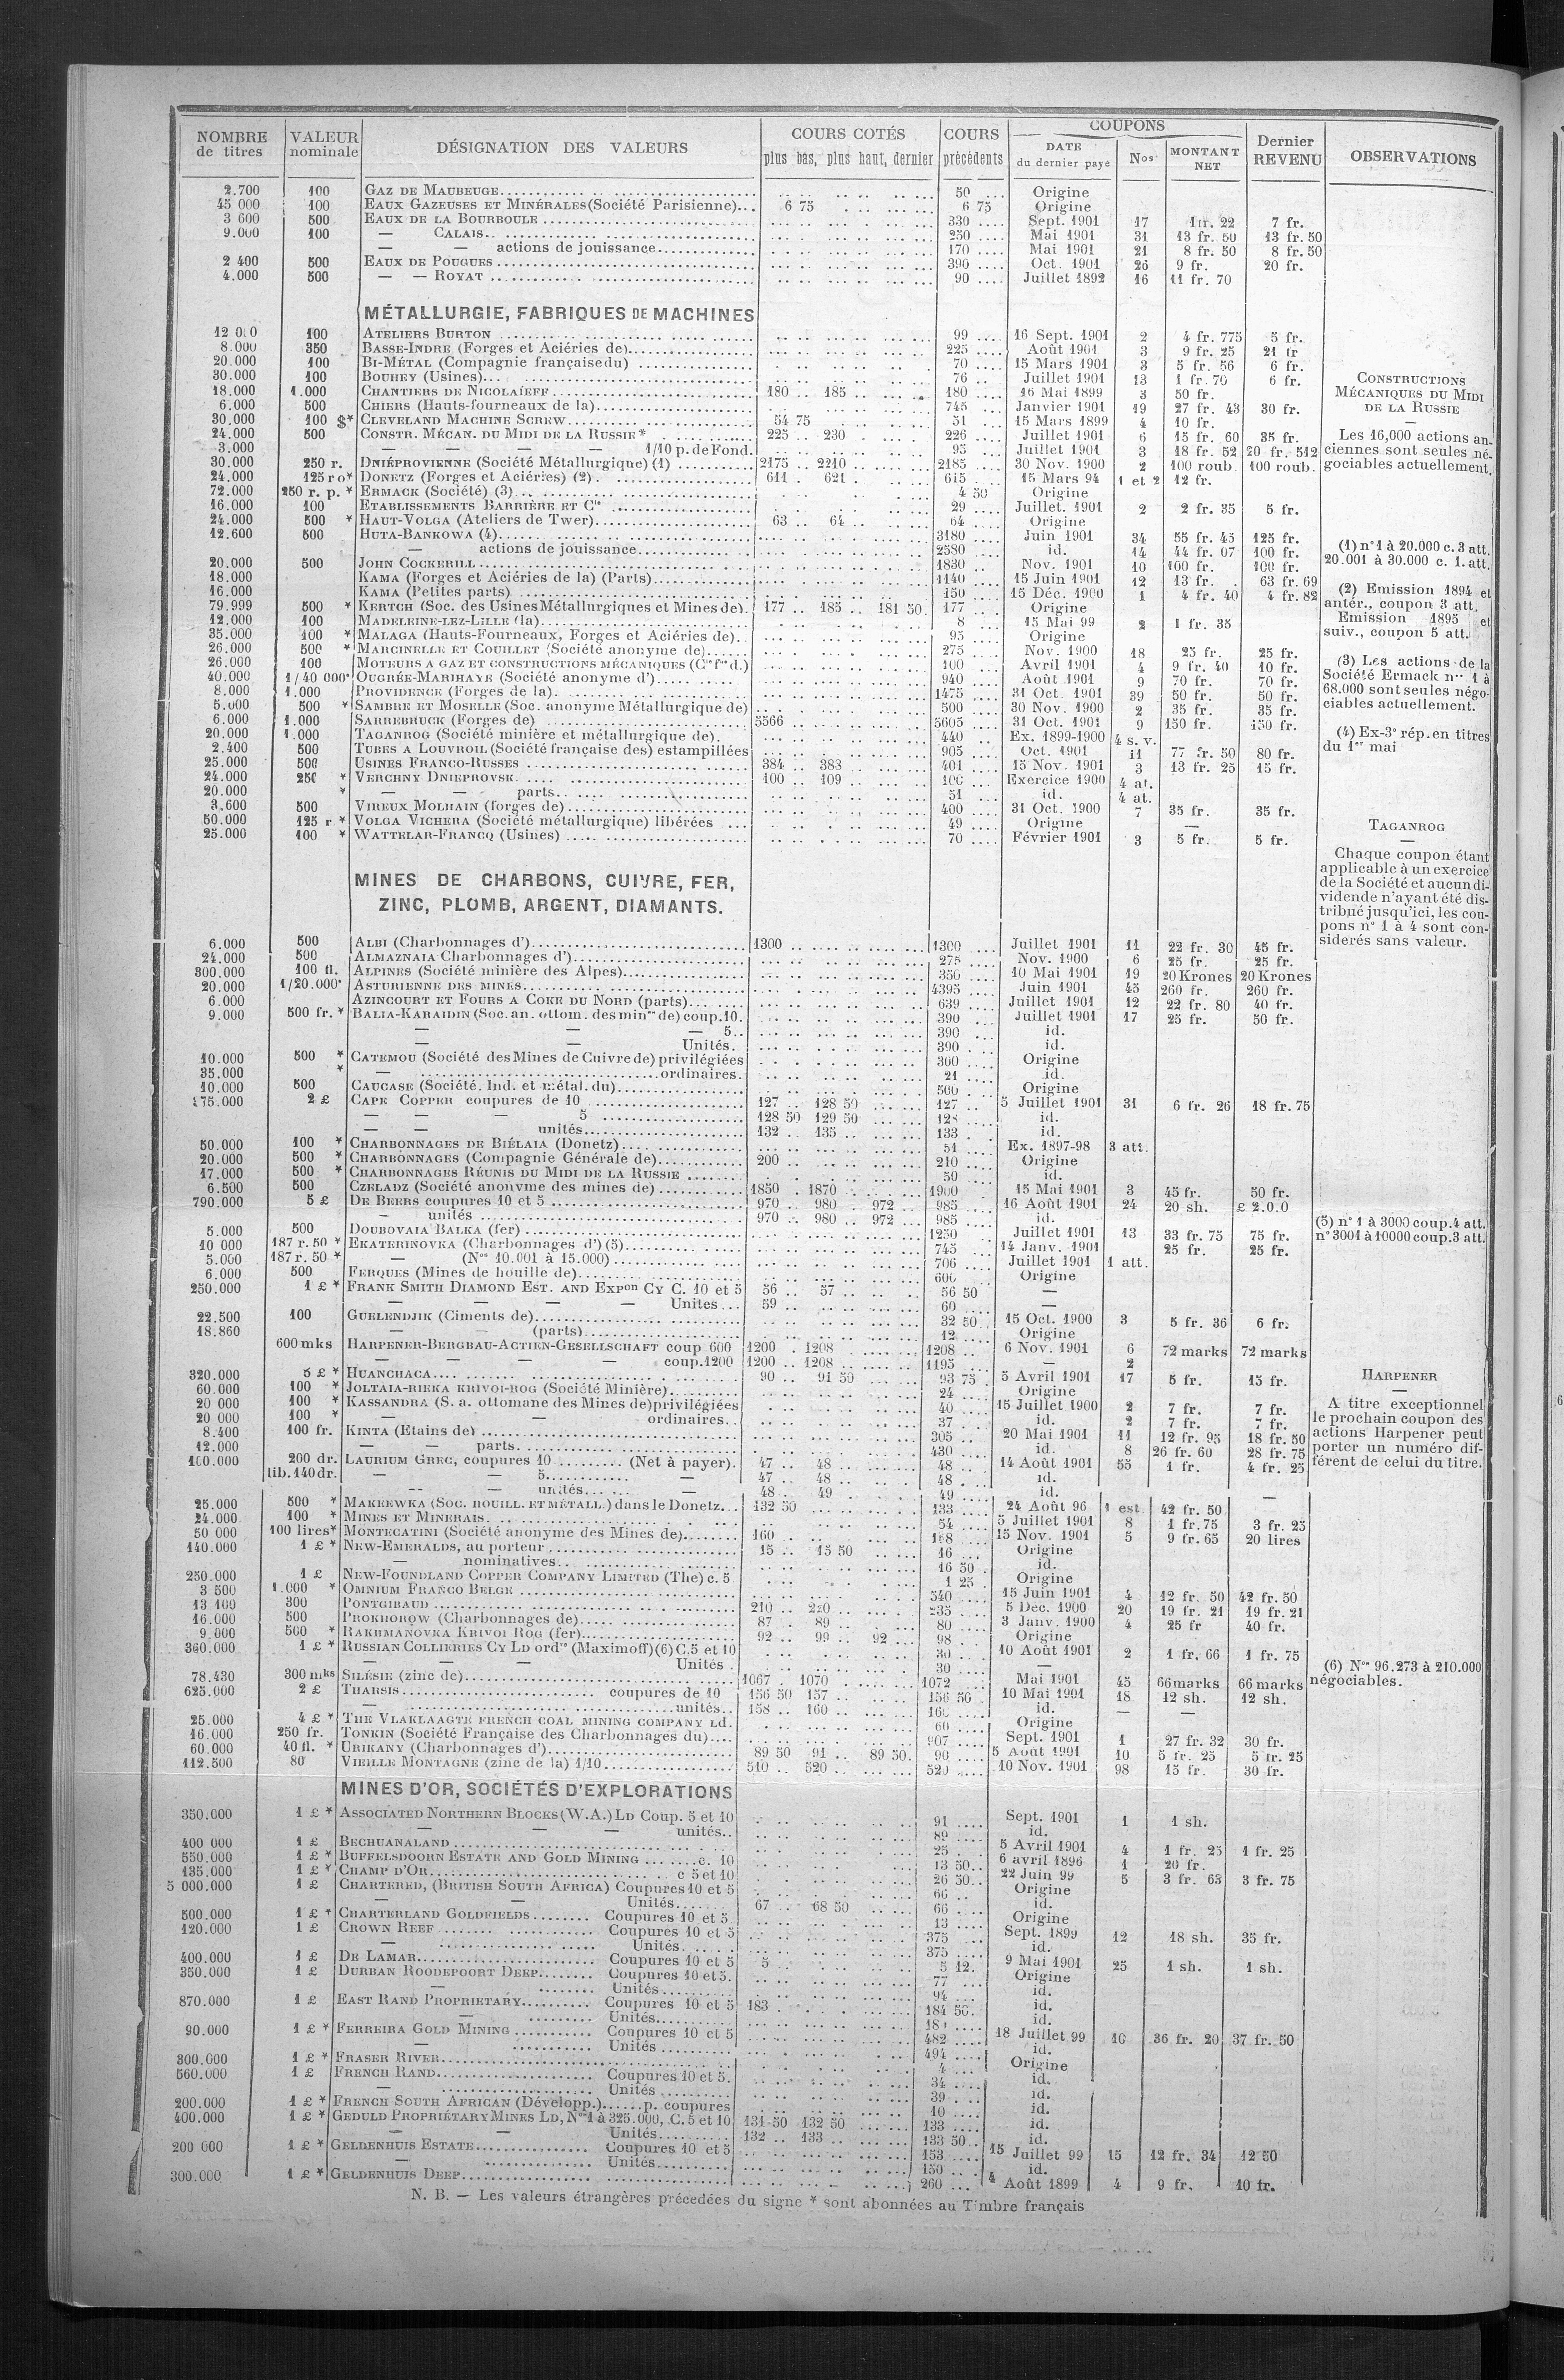 NOMBRE de titres | VALEUR nominale | DÉSIGNATION DES VALEURS | COURS COTÉS plus bas, plus haut, dernier | COURS précédents | COUPONS DATE du dernier paye | Nos | MONTANT NET | Dernier REVENU | OBSERVATIONS
2.700 100 GAZ DE MAUBEUGE 50 Origine
45 000 100 EAUX GAZEUSES ET MINÉRALES (Société Parisienne) 6 75 6 75 Origine
3 600 500 EAUX DE LA BOURBOULE 330 Sept. 1901 17 22 7 fr.
9.000 100 — CALAIS 250 Mai 1901 31 13 fr. 50 13 fr. 50
— — actions de jouissance 170 Mai 1901 21 8 fr. 50 8 fr. 50
2 400 500 EAUX DE POUGUES 396 Oct. 1901 26 9 fr. 20 fr.
4.000 500 — — ROYAT 90 Juillet 1892 16 11 fr. 70
MÉTALLURGIE, FABRIQUES DE MACHINES
12 000 100 ATELIERS BURTON 99 16 Sept. 1901 2 4 fr. 775 5 fr.
8.000 350 BASSE-INDRE (Forges et Aciéries de) 225 Août 1901 3 9 fr. 25 21 fr
20.000 100 BI-MÉTAL (Compagnie française du) 70 15 Mars 1901 3 5 fr. 56 6 fr.
30.000 100 BOUHEY (Usines) 76 Juillet 1901 13 1 fr. 70 6 fr.
18.000 1.000 CHANTIERS DE NICOLAÏEFF 180 185 180 16 Mai 1899 3 50 fr.
6.000 500 CHIERS (Hauts-fourneaux de la) 745 Janvier 1901 19 27 fr. 43 30 fr.
30.000 100 $* CLEVELAND MACHINE SCREW 54 75 51 15 Mars 1899 4 10 fr.
24.000 500 CONSTR. MÉCAN. DU MIDI DE LA RUSSIE * 225 230 226 Juillet 1901 6 15 fr. 60 35 fr.
3.000 — — — — 1/10 p. de Fond. 95 Juillet 1901 3 18 fr. 52 20 fr. 512
30.000 250 r. DNIÉPROVIENNE (Société Métallurgique) (1) 2175 2210 2185 30 Nov. 1900 2 100 roub. 100 roub.
24.000 125 ro* DONETZ (Forges et Aciéries) (2) 611 621 615 15 Mars 94 1 et 2 12 fr.
72.000 250 r. p. * ERMACK (Société) (3) 4 50 Origine
16.000 100 ETABLISSEMENTS BARRIÈRE ET Cie 29 Juillet. 1901 2 2 fr. 35 5 fr.
24.000 500 * HAUT-VOLGA (Ateliers de Twer) 63 64 64 Origine
12.600 500 HUTA-BANKOWA (4) 3180 Juin 1901 34 55 fr. 45 125 fr.
— actions de jouissance 2580 id. 14 44 fr. 07 100 fr.
20.000 500 JOHN COCKERILL 1830 Nov. 1901 10 100 fr. 100 fr.
18.000 KAMA (Forges et Aciéries de la) (Parts) 1140 15 Juin 1901 12 13 fr. 63 fr. 69
16.000 KAMA (Petites parts) 150 15 Déc. 1900 1 4 fr. 40 4 fr. 82
79.999 500 * KERTCH (Soc. des Usines Métallurgiques et Mines de) 177 185 181 50 177 Origine
12.000 100 MADELEINE-LEZ-LILLE (la) 8 15 Mai 99 2 1 fr. 35
35.000 100 * MALAGA (Hauts-Fourneaux, Forges et Aciéries de) 95 Origine
26.000 500 * MARCINELLE ET COUILLET (Société anonyme de) 275 Nov. 1900 18 25 fr. 25 fr.
26.000 100 MOTEURS A GAZ ET CONSTRUCTIONS MÉCANIQUES (Cie fse d.) 100 Avril 1901 4 9 fr. 40 10 fr.
40.000 1/40 000e OUGRÉE-MARIHAYE (Société anonyme d') 940 Août 1901 9 70 fr. 70 fr.
8.000 1.000 PROVIDENCE (Forges de la) 1475 31 Oct. 1901 39 50 fr. 50 fr.
5.000 500 * SAMBRE ET MOSELLE (Soc. anonyme Métallurgique de) 500 30 Nov. 1900 2 35 fr. 35 fr.
6.000 1.000 SARREBRUCK (Forges de) 5566 5605 31 Oct. 1901 9 150 fr. 150 fr.
20.000 1.000 TAGANROG (Société minière et métallurgique de) 440 Ex. 1899-1900 4 s. v.
2.400 500 TUBES A LOUVROIL (Société française des) estampillées 905 Oct. 1901 11 77 fr. 50 80 fr.
25.000 500 USINES FRANCO-RUSSES 384 388 401 15 Nov. 1901 3 13 fr. 25 15 fr.
24.000 250 * VERCHNY DNIEPROVSK 100 109 100 Exercice 1900 4 at.
20.000 * — — parts 51 id. 4 at.
3.600 500 VIREUX MOLHAIN (forges de) 400 31 Oct. 1900 7 35 fr. 35 fr.
50.000 125 r * VOLGA VICHERA (Société métallurgique) libérées 49 Origine —
25.000 100 * WATTELAR-FRANCQ (Usines) 70 Février 1901 3 5 fr. 5 fr.
MINES DE CHARBONS, CUIVRE, FER,
ZINC, PLOMB, ARGENT, DIAMANTS.
6.000 500 ALBI (Charbonnages d') 1300 1300 Juillet 1901 11 22 fr. 30 45 fr.
24.000 500 ALMAZNAIA Charbonnages d') 275 Nov. 1900 6 25 fr. 25 fr.
300.000 100 fl. ALPINES (Société minière des Alpes) 350 10 Mai 1901 19 20 Krones 20 Krones
20.000 1/20.000e ASTURIENNE DES MINES 4395 Juin 1901 45 260 fr. 260 fr.
6.000 AZINCOURT ET FOURS A COKE DU NORD (parts) 639 Juillet 1901 12 22 fr. 80 40 fr.
9.000 500 fr. * BALIA-KARAIDIN (Soc. an. ottom. des mines de) coup. 10. 390 Juillet 1901 17 25 fr. 50 fr.
— — — 5 390 id.
— — Unités. 390 id.
10.000 500 * CATEMOU (Société des Mines de Cuivre de) privilégiées 300 Origine
35.000 * — ordinaires. 21 id.
10.000 500 CAUCASE (Société. Ind. et métal. du) 500 Origine
175.000 2 £ CAPE COPPER coupures de 10 127 128 50 127 5 Juillet 1901 31 6 fr. 26 18 fr. 75
— — — 5 128 50 129 50 128 id.
— — unités 132 135 133 id.
50.000 100 * CHARBONNAGES DE BIÉLAIA (Donetz) 51 Ex. 1897-98 3 att.
20.000 500 * CHARBONNAGES (Compagnie Générale de) 200 210 Origine
17.000 500 * CHARBONNAGES RÉUNIS DU MIDI DE LA RUSSIE 50 id.
6.500 500 CZELADZ (Société anonyme des mines de) 1850 1870 1900 15 Mai 1901 3 45 fr. 50 fr.
790.000 5 £ DE BEERS coupures 10 et 5 970 980 972 985 16 Août 1901 24 20 sh. £ 2.0.0
— unités 970 980 972 985 id.
5.000 500 DOUBOVAIA BALKA (fer) 1250 Juillet 1901 13 33 fr. 75 75 fr.
10 000 187 r. 50 * EKATERINOVKA (Charbonnages d') (5) 745 14 Janv. 1901 25 fr. 25 fr.
5.000 187 r. 50 * — (Nos 10.001 à 15.000) 706 Juillet 1901 1 att.
6.000 500 FERQUES (Mines de houille de) 600 Origine
250.000 1 £ * FRANK SMITH DIAMOND EST. AND EXPon CY C. 10 et 5 56 57 56 50 —
— — — — Unites 59 60 —
22.500 100 GUELENDJIK (Ciments de) 32 50 15 Oct. 1900 3 5 fr. 36 6 fr.
18.860 — — (parts) 12 Origine
600 mks HARPENER-BERGBAU-ACTIEN-GESELLSCHAFT coup 600 1200 1208 1208 6 Nov. 1901 6 72 marks 72 marks
— — — — coup. 1200 1200 1208 1195 — 2
320.000 5 £ * HUANCHACA 90 91 50 93 75 5 Avril 1901 17 5 fr. 15 fr.
60.000 100 * JOLTAIA-RIEKA KRIVOI-ROG (Société Minière) 24 Origine
20 000 100 * KASSANDRA (S. a. ottomane des Mines de) privilégiées 40 15 Juillet 1900 2 7 fr. 7 fr.
20 000 100 * — — ordinaires 37 id. 2 7 fr. 7 fr.
8.400 100 fr. KINTA (Etains de) 305 20 Mai 1901 11 12 fr. 95 18 fr. 50
12.000 — — parts 430 id. 8 26 fr. 60 28 fr. 75
100.000 200 dr. LAURIUM GREC, coupures 10 (Net à payer) 47 48 48 14 Août 1901 55 1 fr. 4 fr. 25
lib. 140 dr. — — 5 — 47 48 48 id.
— — unités — 48 49 49 id. —
25.000 500 * MAKEEWKA (SOC. HOUILL. ET MÉTALL.) dans le Donetz 132 50 133 24 Août 96 1 est. 42 fr. 50
24.000 100 * MINES ET MINERAIS 54 5 Juillet 1901 8 1 fr. 75 3 fr. 25
50 000 100 lires* MONTECATINI (Société anonyme des Mines de) 160 168 15 Nov. 1901 5 9 fr. 65 20 lires
140.000 1 £ * NEW-EMERALDS, au porteur 15 15 50 16 Origine
— nominatives 16 50 id.
250.000 1 £ NEW-FOUNDLAND COPPER COMPANY LIMITED (The) c. 5 1 25 Origine
3 500 1.000 * OMNIUM FRANCO BELGE 540 15 Juin 1901 4 12 fr. 50 42 fr. 50
13 100 300 PONTGIBAUD 210 220 235 5 Dec. 1900 20 19 fr. 21 19 fr. 21
16.000 500 PROKHOROW (Charbonnages de) 87 89 80 3 Janv. 1900 4 25 fr 40 fr.
9.000 500 * RAKHMANOVKA KRIVOI ROG (fer) 92 99 92 98 Origine
360.000 1 £ * RUSSIAN COLLIERIES CY LD ordres (Maximoff) (6) C. 5 et 10 30 10 Août 1901 2 1 fr. 66 1 fr. 75
Unités 30 —
78.430 300 mks SILÉSIE (zinc de) 1067 1070 1072 Mai 1901 45 66 marks 66 marks
625.000 2 £ THARSIS coupures de 10 156 50 157 156 50 10 Mai 1901 18 12 sh. 12 sh.
— unités 158 160 160 id. — —
25.000 4 £ * THE VLAKLAAGTE FRENCH COAL MINING COMPANY Ld. 60 Origine
16.000 250 fr. TONKIN (Société Française des Charbonnages du) 907 Sept. 1901 1 27 fr. 32 30 fr.
60.000 40 fl. * URIKANY (Charbonnages d') 89 50 91 89 50 90 5 Août 1901 10 5 fr. 25 5 fr. 25
112.500 80 VIEILLE MONTAGNE (zinc de la) 1/10 510 520 520 10 Nov. 1901 98 15 fr. 30 fr.
MINES D'OR, SOCIÉTÉS D'EXPLORATIONS
350.000 1 £ * ASSOCIATED NORTHERN BLOCKS (W.A.) LD Coup. 5 et 10 91 Sept. 1901 1 1 sh.
— — — unités 89 id.
400 000 1 £ BECHUANALAND 25 5 Avril 1901 4 1 fr. 25 1 fr. 25
550.000 1 £ * BUFFELSDOORN ESTATE AND GOLD MINING c. 10 13 50 6 avril 1896 1 20 fr.
135.000 1 £ * CHAMP D'OR c 5 et 10 26 50 22 Juin 99 5 3 fr. 63 3 fr. 75
5 000.000 1 £ CHARTERED, (BRITISH SOUTH AFRICA) Coupures 10 et 5 66 Origine
— — Unités 67 68 50 66 id.
500.000 1 £ * CHARTERLAND GOLDFIELDS Coupures 10 et 5 13 Origine
120.000 1 £ CROWN REEF Coupures 10 et 5 375 Sept. 1899 12 18 sh. 35 fr.
— Unités 375 id.
400.000 1 £ DE LAMAR Coupures 10 et 5 5 5 12 9 Mai 1901 25 1 sh. 1 sh.
350.000 1 £ DURBAN ROODEPOORT DEEP Coupures 10 et 5 77 Origine
— Unités 94 id.
870.000 1 £ EAST RAND PROPRIETARY Coupures 10 et 5 183 184 50 id.
— Unités id.
90.000 1 £ * FERREIRA GOLD MINING Coupures 10 et 5 482 18 Juillet 99 16 36 fr. 20 37 fr. 50
— Unités 494 id.
300.000 1 £ * FRASER RIVER 4 Origine
560.000 1 £ FRENCH RAND Coupures 10 et 5 34 id.
— Unités 39 id.
200.000 1 £ * FRENCH SOUTH AFRICAN (Développ.) p. coupures 10 id.
400.000 1 £ * GEDULD PROPRIÉTARY MINES LD, Nos 1 à 325.000, C. 5 et 10 131-50 132 50 133 id.
— — Unités 132 133 133 50 id.
200 000 1 £ * GELDENHUIS ESTATE Coupures 10 et 5 153 15 Juillet 99 15 12 fr. 34 12 50
— Unités 150 id.
300.000 1 £ * GELDENHUIS DEEP 260 4 Août 1899 4 9 fr. 10 fr.
CONSTRUCTIONS
MÉCANIQUES DU MIDI
DE LA RUSSIE
—
Les 16,000 actions an-
ciennes sont seules né-
gociables actuellement.
(1) n° 1 à 20.000 c. 3 att.
20.001 à 30.000 c. 1. att.
(2) Emission 1894 et
antér., coupon 3 att.
Emission 1895 et
suiv., coupon 5 att.
(3) Les actions de la
Société Ermack nos 1 à
68.000 sont seules négo-
ciables actuellement.
(4) Ex-3e rép. en titres
du 1er mai
TAGANROG
—
Chaque coupon étant
applicable à un exercice
de la Société et aucun di-
vidende n'ayant été dis-
tribué jusqu'ici, les cou-
pons n° 1 à 4 sont con-
siderés sans valeur.
(5) n° 1 à 3000 coup. 4 att.
n° 3001 à 10000 coup. 3 att.
HARPENER
—
A titre exceptionnel
le prochain coupon des
actions Harpener peut
porter un numéro dif-
férent de celui du titre.
(6) Nos 96.273 à 210.000
négociables.
N. B. — Les valeurs étrangères précedées du signe * sont abonnées au Timbre français